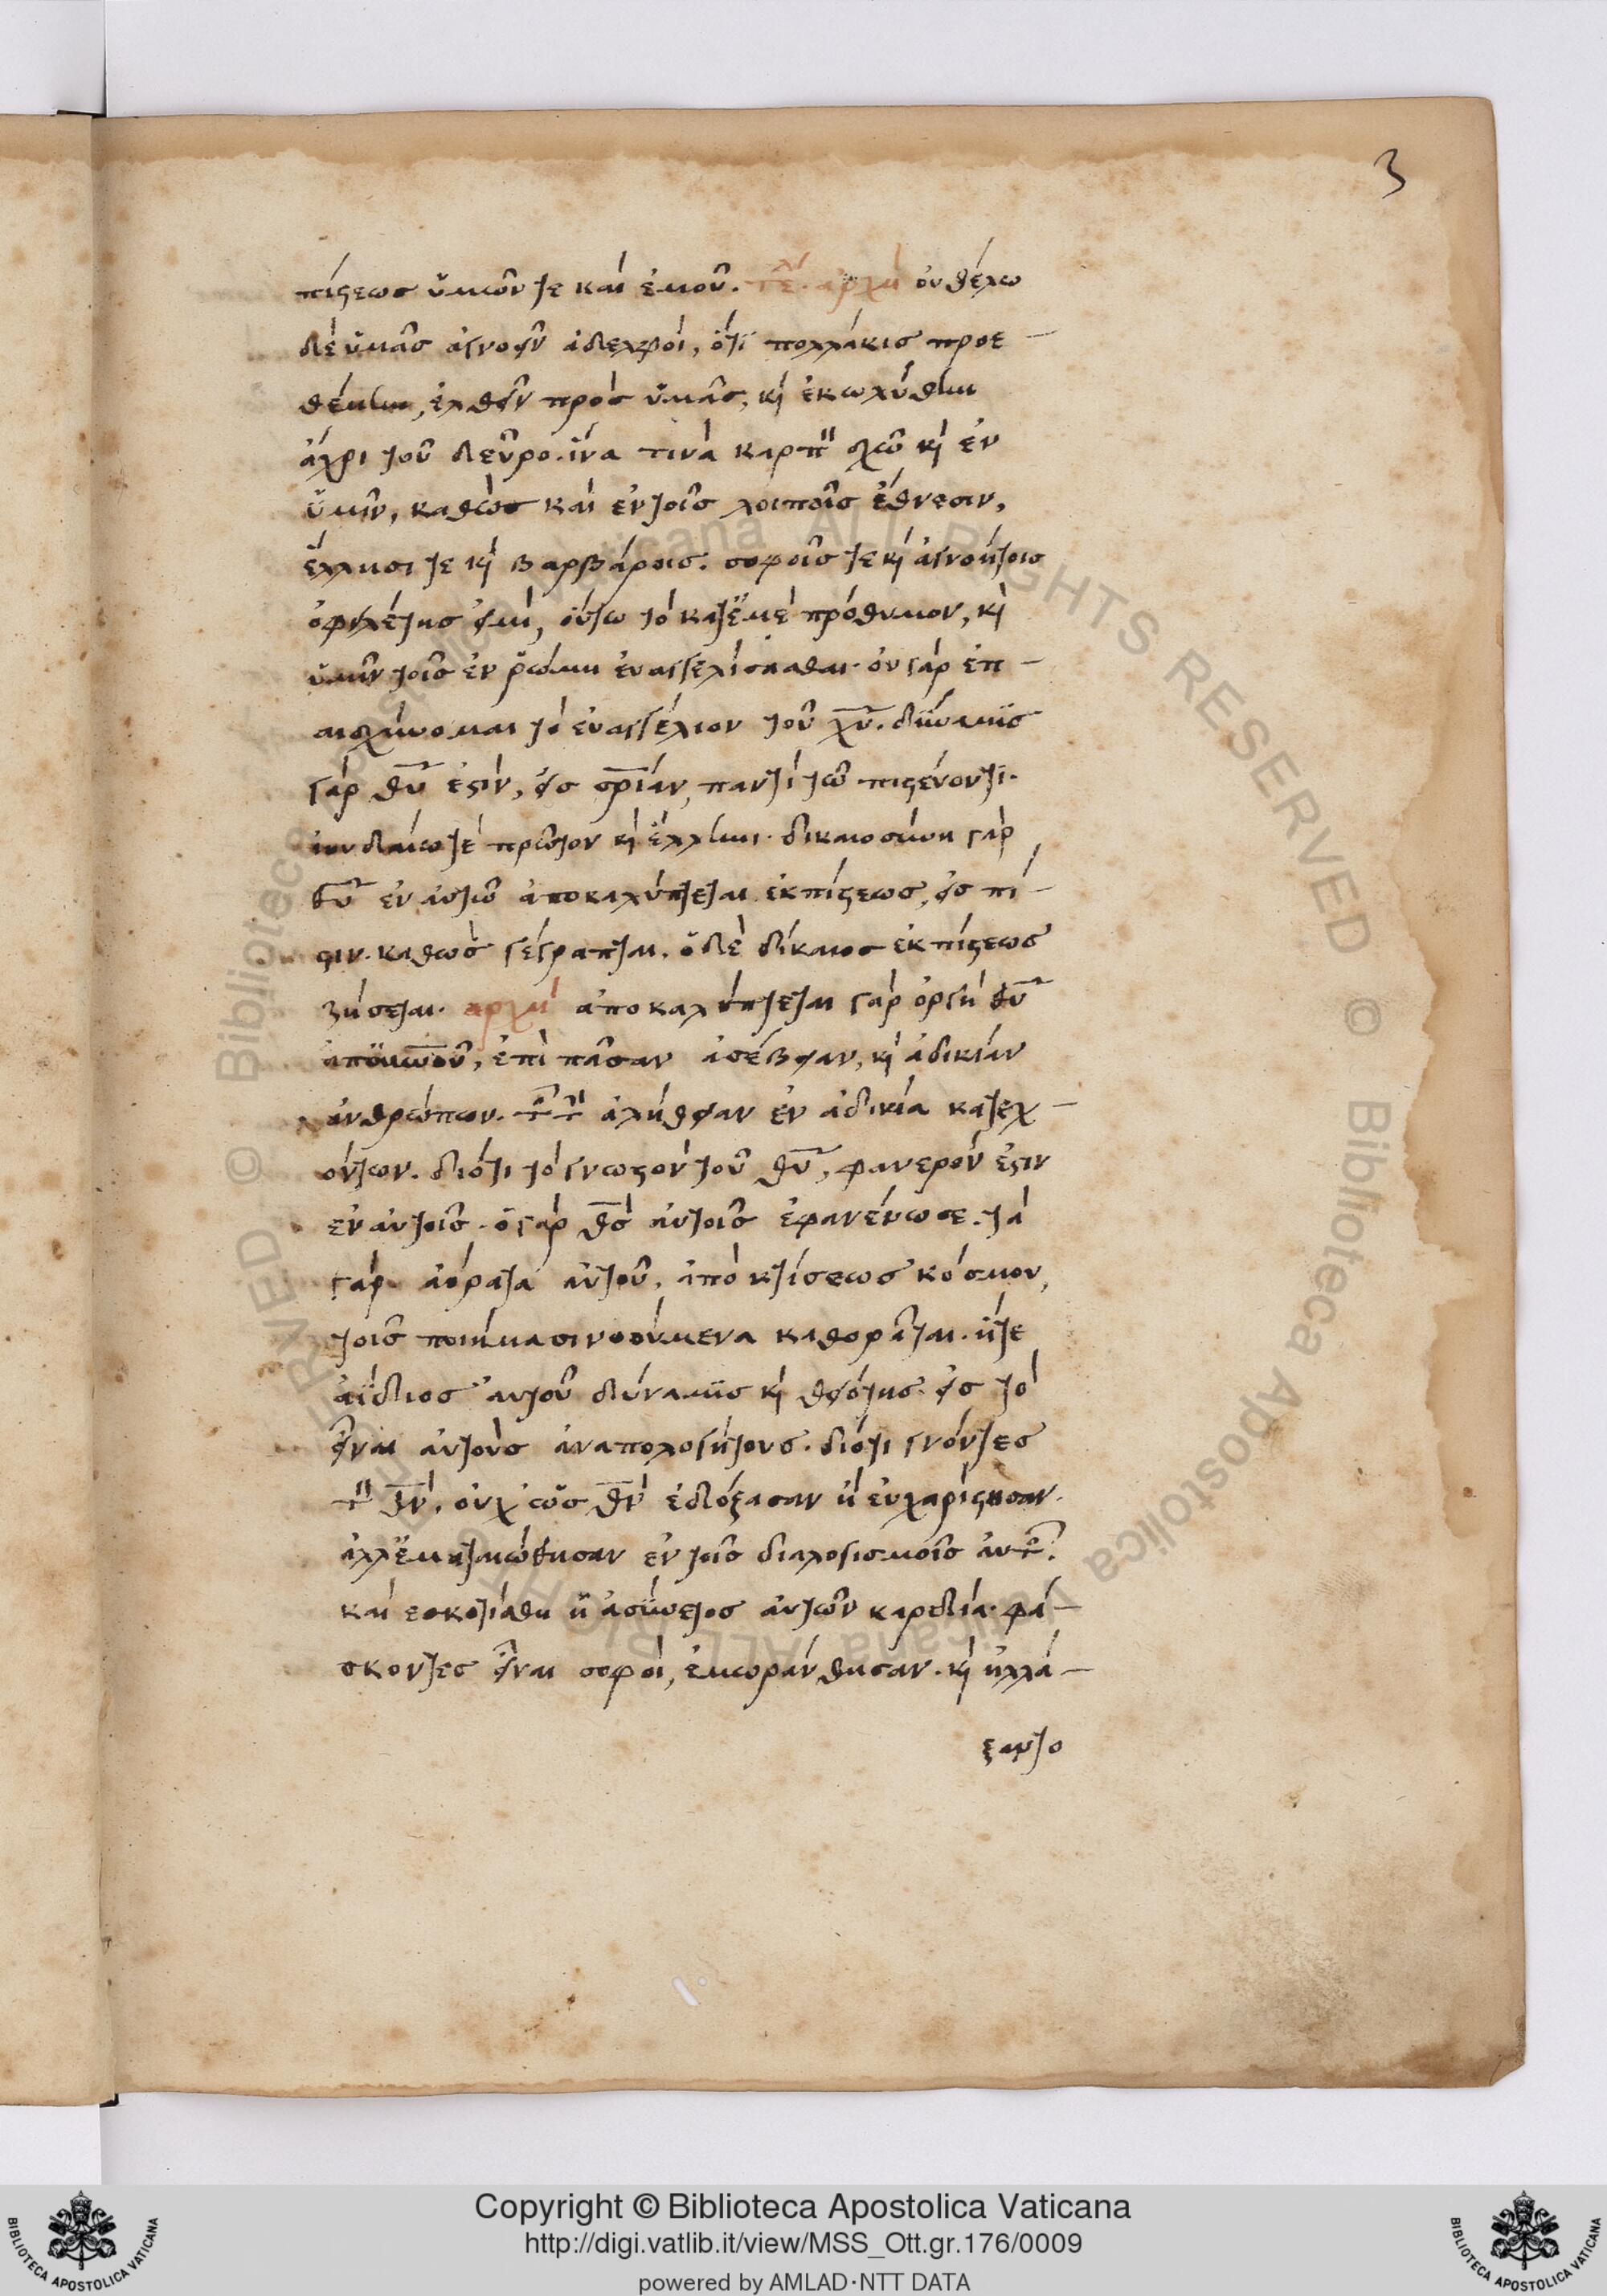 3
πίστεως ὑμῶν τε καὶ ἐμοῦ. τέλ. ἀρχὴ οὐ θέλω
δὲ ὑμᾶς ἀγνοεῖν ἀδελφοί, ὅτι πολλάκις προε-
θέμην, ἐλθεῖν πρὸς ὑμᾶς, κὶ ἐκωλύθην
ἄχρι τοῦ δεῦρο. ἵνα τινὰ καρπὸν σχῶ κὶ ἐν
ὑμῖν, καθὼς καὶ ἐν τοῖς λοιποῖς ἔθνεσιν,
ἕλλησι τε κὶ βαρβάροις. σοφοῖς τε κὶ ἀγνοήτοις
ὀφειλέτης εἰμί, οὕτω τὸ κατ' ἐμὲ πρόθυμον, κὶ
ὑμῖν τοῖς ἐν ῥώμη εὐαγγελίσασθαι. οὐ γὰρ ἐπ-
αισχύνομαι τὸ εὐαγγέλιον τοῦ χῦ. δύναμις
γὰρ θῦ ἐστίν, εἰς σρίαν, παντὶ τῶ πιστεύοντι.
ἰουδαίω τὲ πρῶτον κὶ ἕλληνι. δικαιοσύνη γὰρ
θῦ ἐν αὐτῶ ἀποκαλύπτεται ἐκ πίστεως, εἰς πί-
στιν. καθὼς γέγραπται. ὁ δὲ δίκαιος ἐκ πίστεως
ζήσεται. ἀρχὴ ἀποκαλύπτεται γὰρ ὀργὴ θῦ
ἀπ' οὐνοῦ, ἐπὶ πᾶσαν ἀσέβειαν, κὶ ἀδικίαν
ἀνθρώπων. τῶν τὴν ἀλήθειαν ἐν ἀδικία κατεχ-
όντων. διότι τὸ γνωστὸν τοῦ θῦ, φανερόν ἐστιν
ἐν αὐτοῖς. ὁ γὰρ θς αὐτοῖς ἐφανέρωσε. τὰ
γὰρ ἀόρατα αὐτοῦ, ἀπὸ κτίσεως κόσμου,
τοῖς ποιήμασι νοούμενα καθορᾶται. ἥτε
ἀΐδιος αὐτοῦ δύναμις κὶ θειότης. εἰς τὸ
εἶναι αὐτοὺς ἀναπολογήτους. διότι γνόντες
τὸν θν, οὐχ' ὡς θν ἐδόξασαν ἢ εὐχαρίστησαν.
ἀλλ' ἐματαιώθησαν ἐν τοῖς διαλογισμοῖς αὐτῶν.
καὶ ἐσκοτίσθη ἡ ἀσύνετος αὐτῶν καρδία. φά-
σκοντες εἶναι σοφοὶ, ἐμωράνθησαν. κὶ ἤλλα-
ξαν το
© Biblioteca Apostolica Vaticana ALL RIGHTS RESERVED © Biblioteca Apostolica Vaticana ALL RIGHTS RESERVED
Copyright © Biblioteca Apostolica Vaticana
http://digi.vatlib.it/view/MSS_Ott.gr.176/0009
powered by AMLAD·NTT DATA
BIBLIOTECA APOSTOLICA VATICANA
BIBLIOTECA APOSTOLICA VATICANA